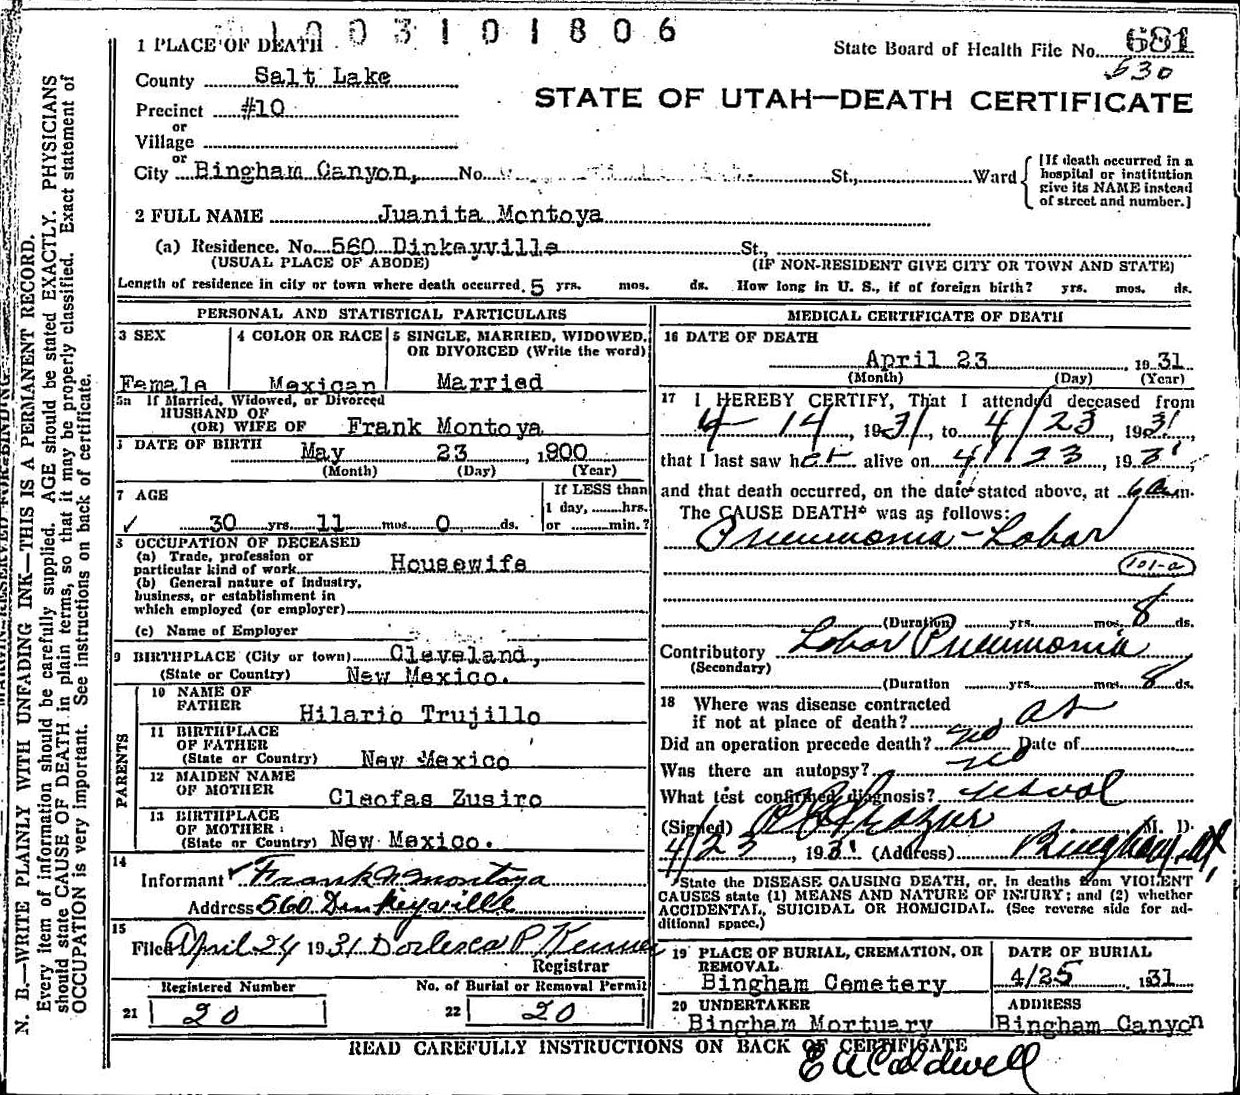 1003101806
1 PLACE OF DEATH
State Board of Health File No. 681
530
County Salt Lake
STATE OF UTAH—DEATH CERTIFICATE
Precinct #10
or
Village
or
City Bingham Canyon, No. St., Ward
[If death occurred in a
hospital or institution
give its NAME instead
of street and number.]
2 FULL NAME Juanita Montoya
(a) Residence. No. 560 Dinkeyville St.,
(USUAL PLACE OF ABODE) (IF NON-RESIDENT GIVE CITY OR TOWN AND STATE)
Length of residence in city or town where death occurred. 5 yrs. mos. ds. How long in U. S., if of foreign birth? yrs. mos. ds.
PERSONAL AND STATISTICAL PARTICULARS
3 SEX
Female
4 COLOR OR RACE
Mexican
5 SINGLE, MARRIED, WIDOWED,
OR DIVORCED (Write the word)
Married
5a If Married, Widowed, or Divorced
HUSBAND OF
(OR) WIFE OF Frank Montoya
DATE OF BIRTH May 23, 1900
(Month) (Day) (Year)
7 AGE
✓ 30 yrs. 11 mos. 0 ds.
If LESS than
1 day, hrs.
or min.?
8 OCCUPATION OF DECEASED
(a) Trade, profession or
particular kind of work Housewife
(b) General nature of industry,
business, or establishment in
which employed (or employer)
(c) Name of Employer
9 BIRTHPLACE (City or town) Cleveland,
(State or Country) New Mexico.
PARENTS
10 NAME OF
FATHER
Hilario Trujillo
11 BIRTHPLACE
OF FATHER
(State or Country) New Mexico
12 MAIDEN NAME
OF MOTHER
Cleofas Zusiro
13 BIRTHPLACE
OF MOTHER
(State or Country) New Mexico.
14
Informant ✓ Frank N Montoya
Address 560 Dinkeyville
15
Filed April 24 1931 P
Registrar
Registered Number
21 20
No. of Burial or Removal Permit
22 20
MEDICAL CERTIFICATE OF DEATH
16 DATE OF DEATH
April 23 1931
(Month) (Day) (Year)
17 I HEREBY CERTIFY, That I attended deceased from
4 14, 1931, to 4/23, 1931,
that I last saw her alive on 4/23, 1931,
and that death occurred, on the date stated above, at 6 a m.
The CAUSE DEATH* was as follows:
Pneumonia - Lobar
101-a
(Duration) yrs. mos. 8 ds.
Contributory Lobar Pneumonia
(Secondary)
(Duration yrs. mos. 8 ds.
18 Where was disease contracted
if not at place of death? at
Did an operation precede death? no Date of
Was there an autopsy? no
What test confirmed diagnosis?
(Signed) M. D.
4/23, 1931 (Address) Bingham, Ut,
*State the DISEASE CAUSING DEATH, or, in deaths from VIOLENT
CAUSES state (1) MEANS AND NATURE OF INJURY; and (2) whether
ACCIDENTAL, SUICIDAL OR HOMICIDAL. (See reverse side for ad-
ditional space.)
19 PLACE OF BURIAL, CREMATION, OR
REMOVAL
Bingham Cemetery
DATE OF BURIAL
4/25 1931
20 UNDERTAKER
Bingham Mortuary
ADDRESS
Bingham Canyon
READ CAREFULLY INSTRUCTIONS ON BACK OF CERTIFICATE
E A Caldwell
MARGIN RESERVED FOR BINDING
N. B.—WRITE PLAINLY WITH UNFADING INK—THIS IS A PERMANENT RECORD.
Every item of information should be carefully supplied. AGE should be stated EXACTLY. PHYSICIANS
should state CAUSE OF DEATH in plain terms, so that it may be properly classified. Exact statement of
OCCUPATION is very important. See instructions on back of certificate.